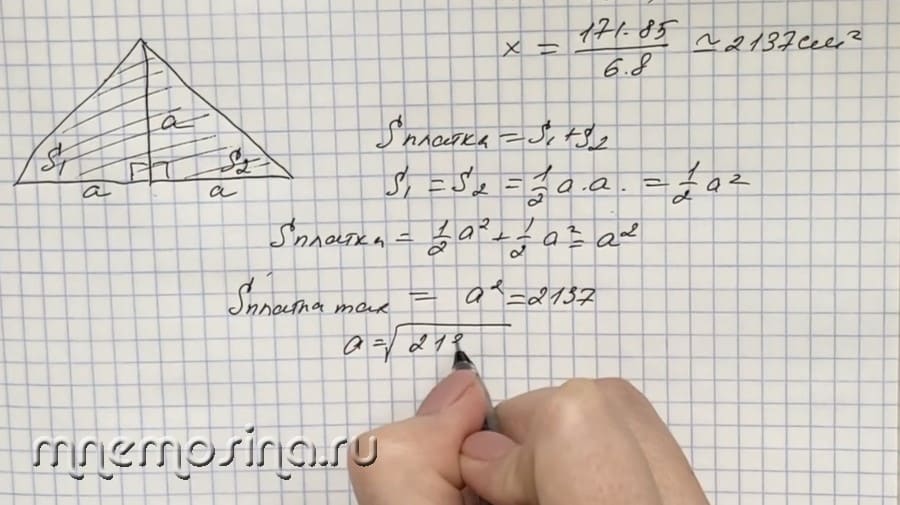 x = 171·85 / 6.8 ≃ 2137 см²
a
S₁
S₂
a
a
Sплатка = S₁ + S₂
S₁ = S₂ = 1/2 a·a. = 1/2 a²
Sплатка = 1/2 a² + 1/2 a² = a²
Sплатка max = a² = 2137
a = √213
mnemosina.ru